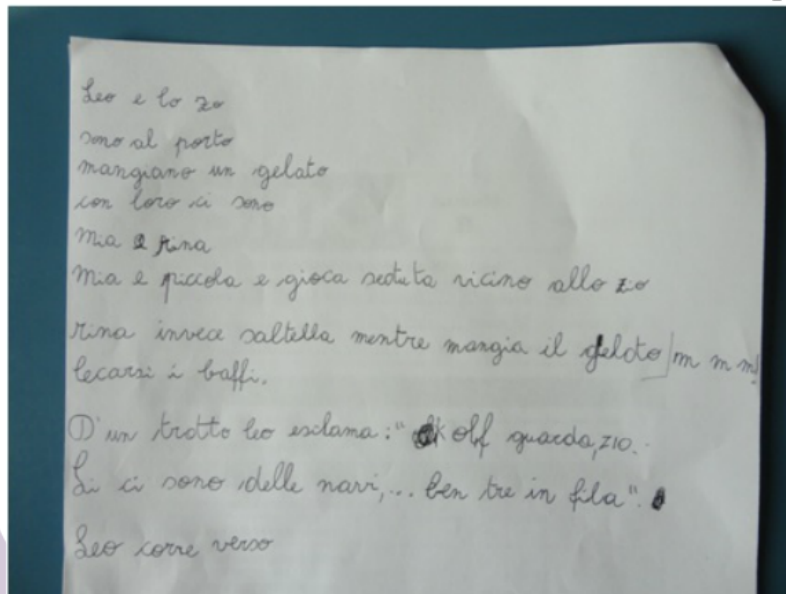 Leo e lo zo
sono al porto
mangiano un gelato
con loro ci sono
mia e rina
mia e piccola e gioca seduta vicino allo zio
rina invece saltella mentre mangia il gelato m m m!
lecarsi i baffi.
D'un trotto leo esclama: " olf guarda, zio..
Li ci sono delle navi,... ben tre in fila".
Leo corre verso